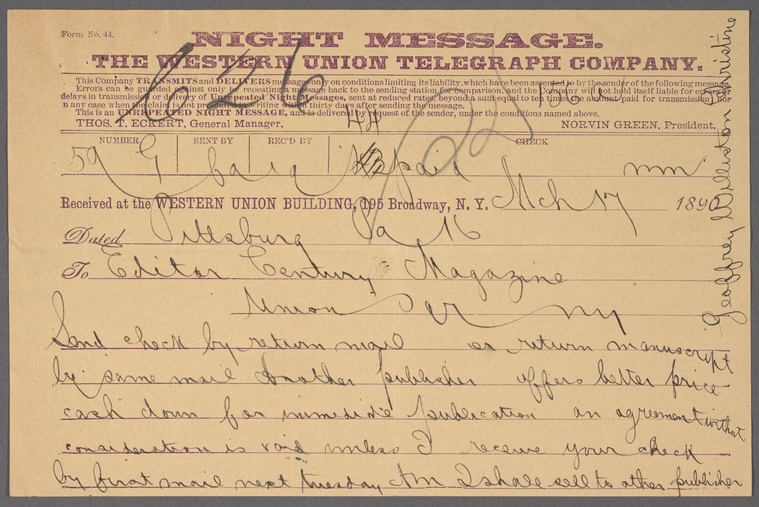 Form No. 44.
NIGHT MESSAGE.
THE WESTERN UNION TELEGRAPH COMPANY.
This Company TRANSMITS and DELIVERS messages only on conditions limiting its liability, which have been assented to by the sender of the following message
Errors can be guarded against only by repeating a message back to the sending station for comparison, and the Company will not hold itself liable for errors or
delays in transmission or delivery of Unrepeated Night Messages, sent at reduced rates, beyond a sum equal to ten times the amount paid for transmission; nor
in any case where the claim is not presented in writing within thirty days after sending the message.
This is an UNREPEATED NIGHT MESSAGE, and is delivered by request of the sender, under the conditions named above.
THOS. T. ECKERT, General Manager. NORVIN GREEN, President.
NUMBER SENT BY REC'D BY CHECK
59 G 44 paid
Received at the WESTERN UNION BUILDING, 195 Broadway, N. Y. Mch 17 1890
Dated Pittsburg Pa 16
To Editor Century Magazine
Union Sqr NY
Send check by return mail or return manuscript
by same mail Another publisher offers better price
cash down for immediate publication an agreement without
consideration is void unless I receive your check
by first mail next tuesday Am I shall sell to other publisher
Geoffrey Williston Christine